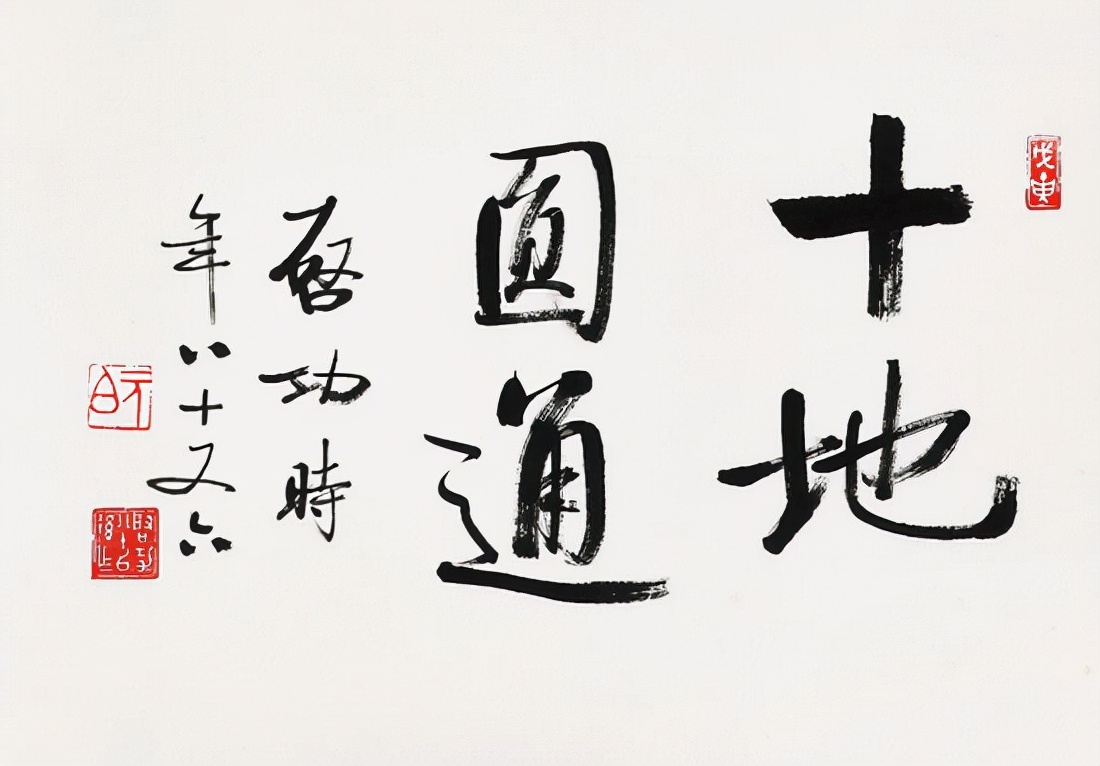 戊寅
十地
圓通
啓功時
年八十又六
元白